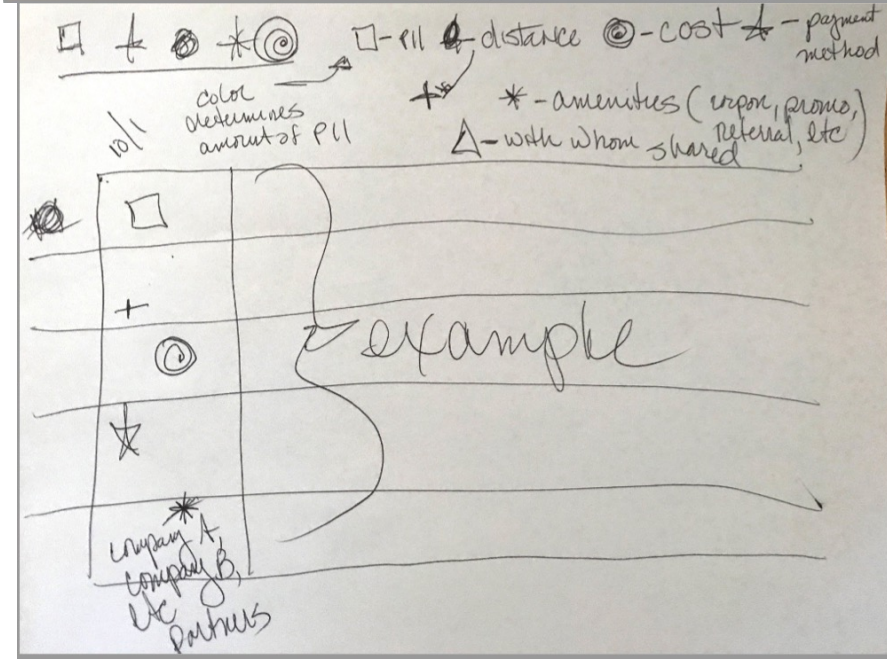 - PII - distance - cost - payment
method
color
determines
amount of PII
* - amenities (coupon, promo,
referral, etc)
- with whom shared
10/1
example
company A,
company B,
etc
partners